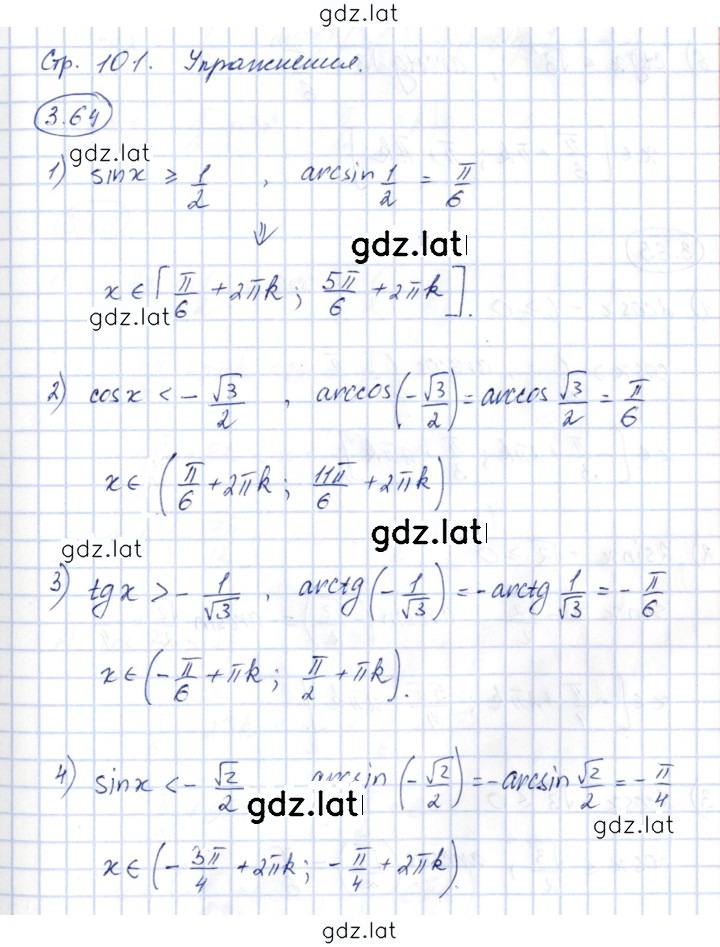 gdz.lat
Стр. 101. Упражнения.
3.64
gdz.lat
1) sinx ≥ 1/2 , arcsin 1/2 = π/6
⇓
gdz.lat
x ∈ [π/6 + 2πk ; 5π/6 + 2πk].
gdz.lat
2) cosx < - √3/2 , arccos(-√3/2) = arccos √3/2 = π/6
x ∈ (π/6 + 2πk ; 11π/6 + 2πk)
gdz.lat
gdz.lat
3) tgx > - 1/√3 , arctg(-1/√3) = -arctg 1/√3 = - π/6
x ∈ (-π/6 + πk ; π/2 + πk).
4) sinx < - √2/2 arcsin (-√2/2) = -arcsin √2/2 = - π/4
gdz.lat
gdz.lat
x ∈ (- 3π/4 + 2πk ; - π/4 + 2πk).
gdz.lat